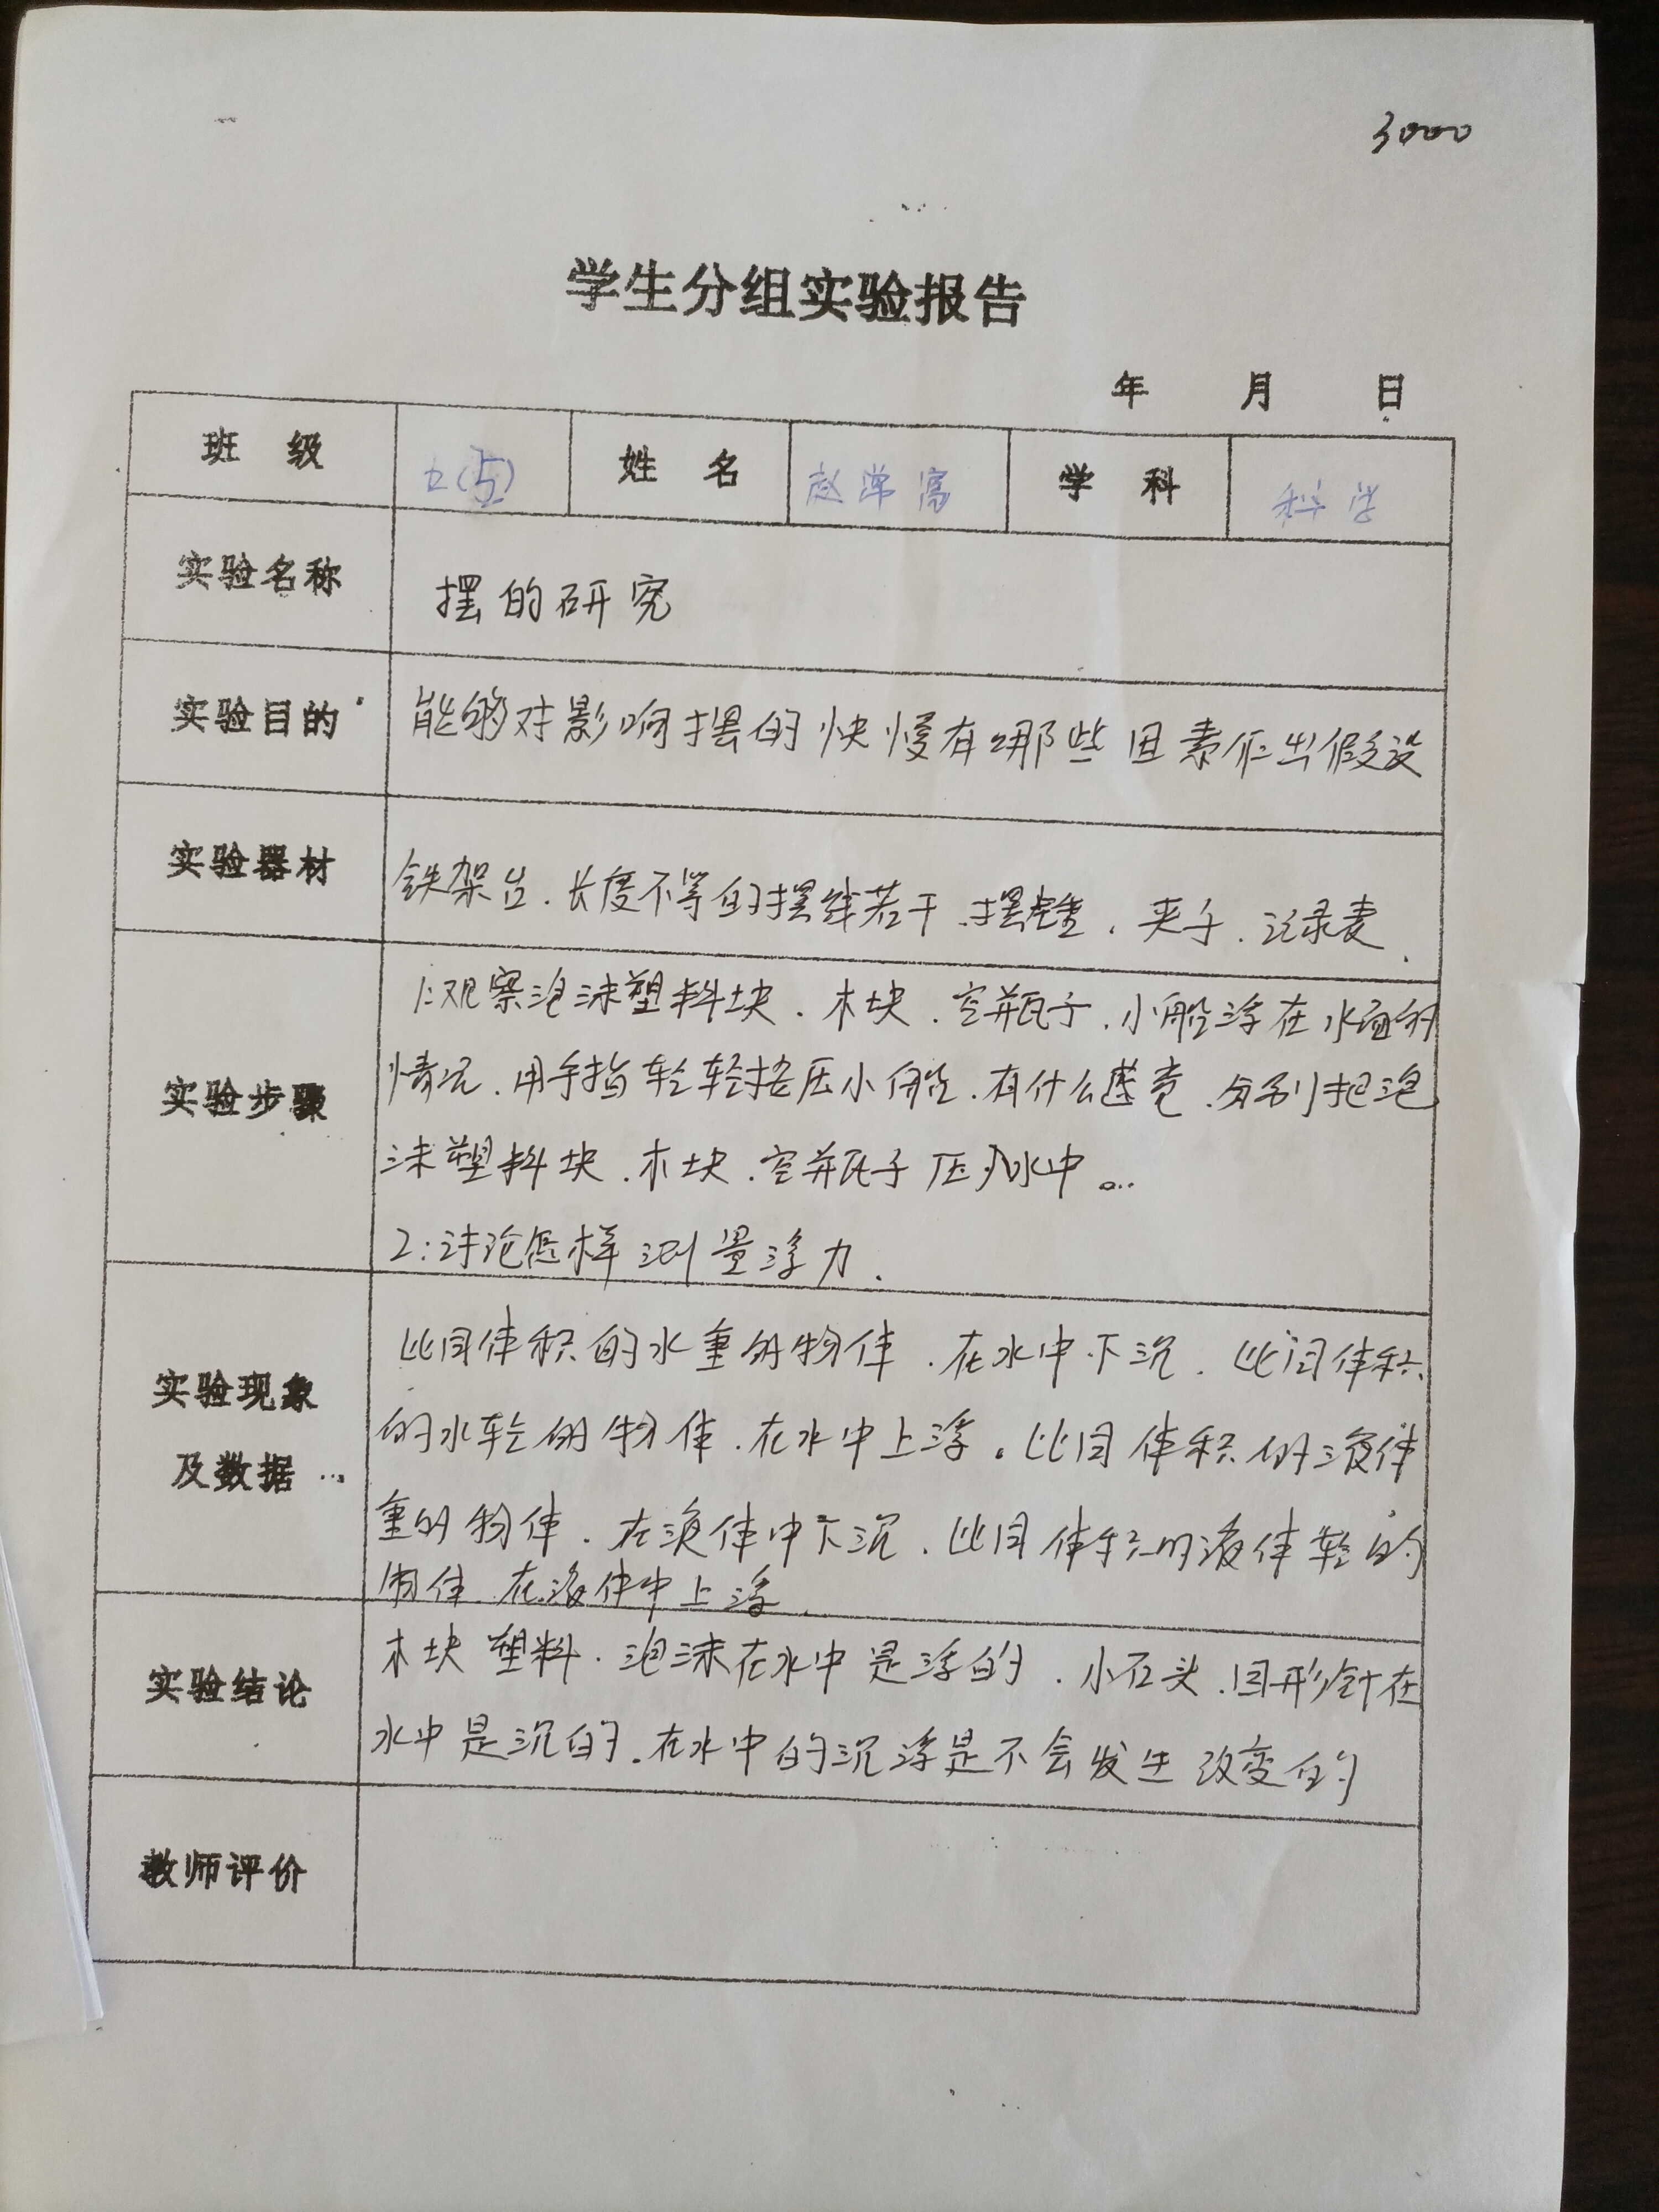 3000
学生分组实验报告
年 月 日
班 级 五(5) 姓 名 赵 学 科 科学
实验名称 摆的研究
实验目的 能够对影响摆的快慢有哪些因素作出假设
实验器材 铁架台、长度不等的摆线若干、摆锤、夹子、记录表、
1:观察泡沫塑料块、木块、空瓶子、小船浮在水面的
实验步骤 情况、用手指轻轻按压小船、有什么感觉、分别把泡
沫塑料块、木块、空瓶子压入水中。..
2:讨论怎样测量浮力、
比同体积的水重的物体、在水中下沉、比同体积
实验现象
的水轻的物体、在水中上浮。比同体积的液体
及数据
重的物体、在液体中下沉、比同体积的液体轻的
物体、在液体中上浮、
木块 塑料、泡沫在水中是浮的、小石头、回形针在
实验结论
水中是沉的、在水中的沉浮是不会发生改变的
教师评价